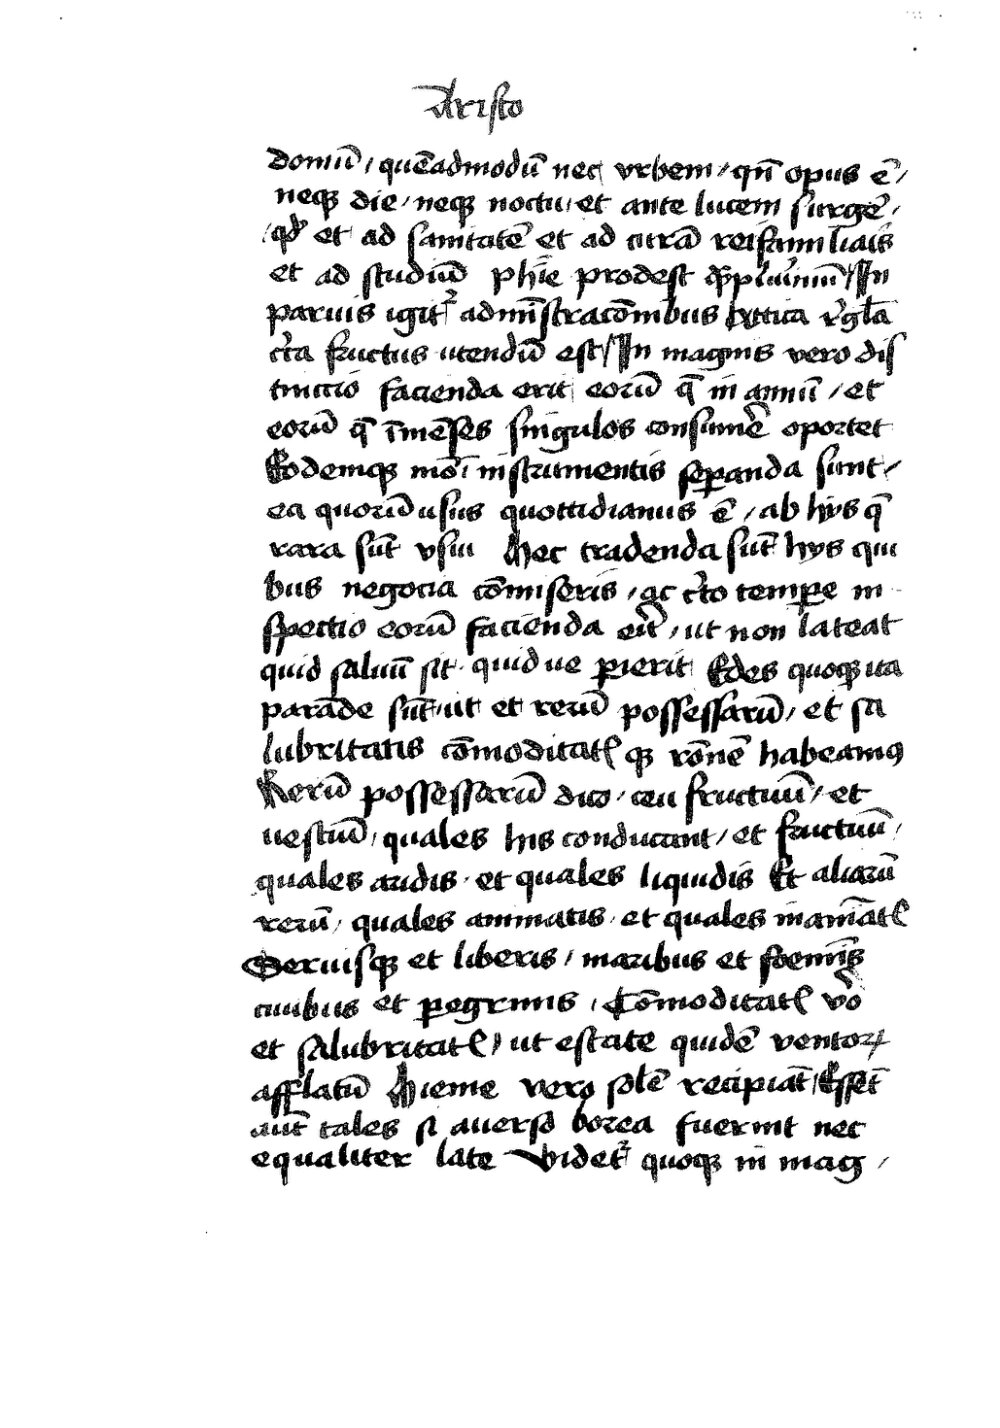 Aristo
domū / quēadmodū nec vrbem / qn̄ opus ē /
neqꝫ die / neqꝫ noctu / et ante lucem surgē /
qd' et ad sanitatē et ad curā reifamiliaris
et ad studiū phie prodest qꝫplurimū / In
paruis igitᷣ admīstracōnibus Attica rgla
cͭra fructus utendū est / In magnis vero dis
tinctio facienda erit eorū q̄ in annū / et
eorū q̄ ī mēses singulos consumē oportet
Eodemqꝫ mōi instrumentis seꝑanda sunt /
ea quorū usus quottidianus ē / ab hys q̄
rara sūt vsui Hec tradenda sūt hys qui
bus negocia cōmiseris / ac cͭto temꝑe in
spectio eorū facienda erit / ut non lateat
quid saluū sit quid ue ꝑierit Edes quoqꝫ ita
parāde sūt / ut et rerū possessarū / et sa
lubritatis cōmoditatꝭ qꝫ rōnē habeamꝰ
Rerū possessarū dico / ceu fructuū / et
uestiū / quales his conducant / et fructuū /
quales aridis / et quales liquidis Et aliarū
rerū / quales animatis / et quales inanīatꝭ
Seruisqꝫ et liberis / maribus et foemīs
ciuibus et ꝑegrinis / Cōmoditatꝭ vo
et salubritatꝭ / ut estate quidē ventoꝝ
afflatū Hieme vero solē recipiāt / Essēt
aut̄ tales si auerso borea fuerint nec
equaliter late Videtᷣ quoqꝫ in mag /